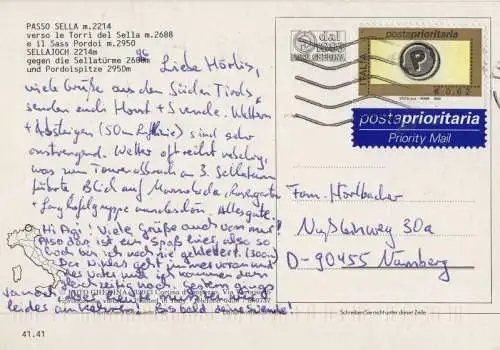 PASSO SELLA m.2214
verso le Torri del Sella m.2688
e il Sass Pordoi m.2950
SELLAJOCH 2214m
gegen die Sellatürme 2688m
und Pordoispitze 2950m
Liebe
viele Grüße aus dem Süden Tirols
senden euch Horst + Svende.
+ Absteigen (50m Luftlinie) sind sehr
anstrengend. Wetter oft recht neblig,
was zum am 3. Sellaturm
führte. Blick auf Marmolada, Rosengarten
+ Langkofelgruppe wunderschön. Alles gute.
Hi Agi! Viele Grüße auch von mir!
Also das ist ein Spaß hier, also so
hoch bin ich noch nie geklettert. (300m)
Das
Vater und ich kommen dann
gleichzeitig nach. Gestern gings
leider Bis bald deine Svende!
41.41
postaprioritaria
P
€ 0,62
postaprioritaria
Priority Mail
Fam. Hörlbacher
Nußleinweg 30a
D-90455 Nürnberg
Schreiben Sie nicht unter dieser Zeile